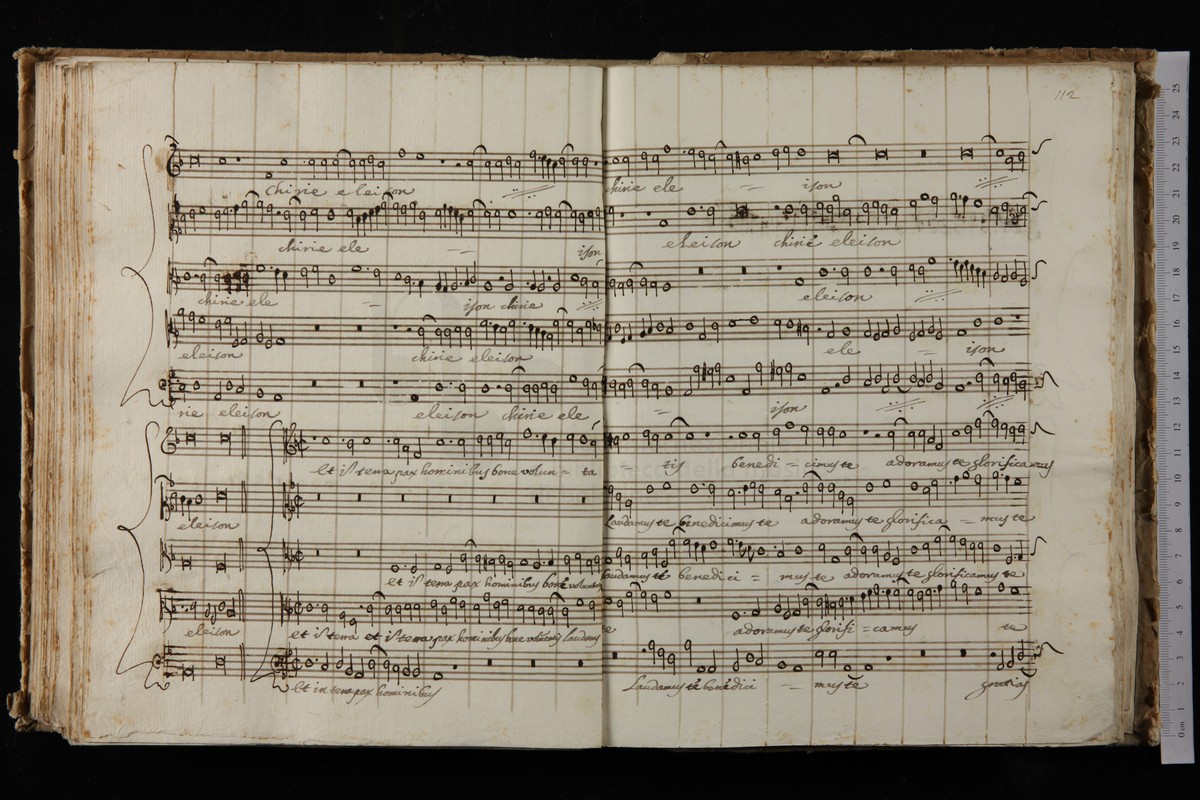 112
chirie eleison chirie ele = ison
chirie ele = ison eleison chirie eleison
chirie ele = ison chirie eleison
eleison chirie eleison ele = ison
rie eleison eleison chirie ele = ison
et in terra pax hominibus bone volun = ta = tis benedi = cimus te adoramus te glorificamus
eleison Laudamus te benedicimus te adoramus te glorifica = mus te
et in terra pax hominibus bone voluntatis laudamus te benedici = mus te adoramus te glorificamus te
eleison et in terra et in terra pax hominibus bone voluntatis laudamus te adoramus te glorifi = camus te
et in terra pax hominibus Laudamus te benedici = mus te gratias